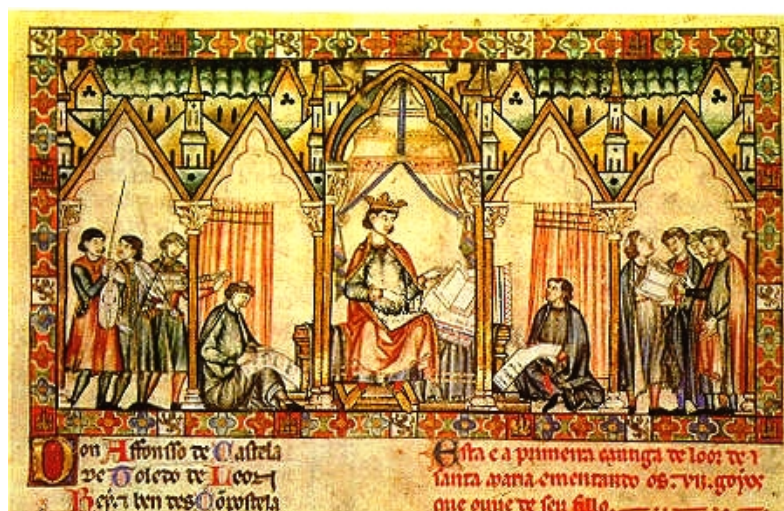 Don Affonsso de Castela
de Toledo de Leon
Rey ⁊ ben des Cõpostela
Esta e a primeira cantiga de loor de
santa maria ementando os .vij. goyos
que ouue de seu fillo.